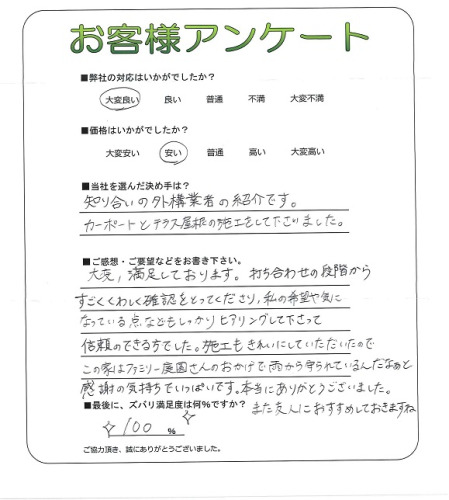 お客様アンケート
■弊社の対応はいかがでしたか?
大変良い 良い 普通 不満 大変不満
■価格はいかがでしたか?
大変安い 安い 普通 高い 大変高い
■当社を選んだ決め手は?
知り合いの外構業者の紹介です。
カーポートとテラス屋根の施工をして下さいました。
■ご感想・ご要望などをお書き下さい。
大変、満足しております。打ち合わせの段階から
すごくくわしく確認をとってくださり、私の希望や気に
なっている点などもしっかりヒアリングして下さって
信頼のできる方でした。施工もきれいにしていただいたので
この家はファミリー庭園さんのおかげで雨から守られているんだなぁと
感謝の気持ちでいっぱいです。本当にありがとうございました。
■最後に、ズバリ満足度は何%ですか? また友人におすすめしておきますね
100 %
ご協力頂き、誠にありがとうございました。